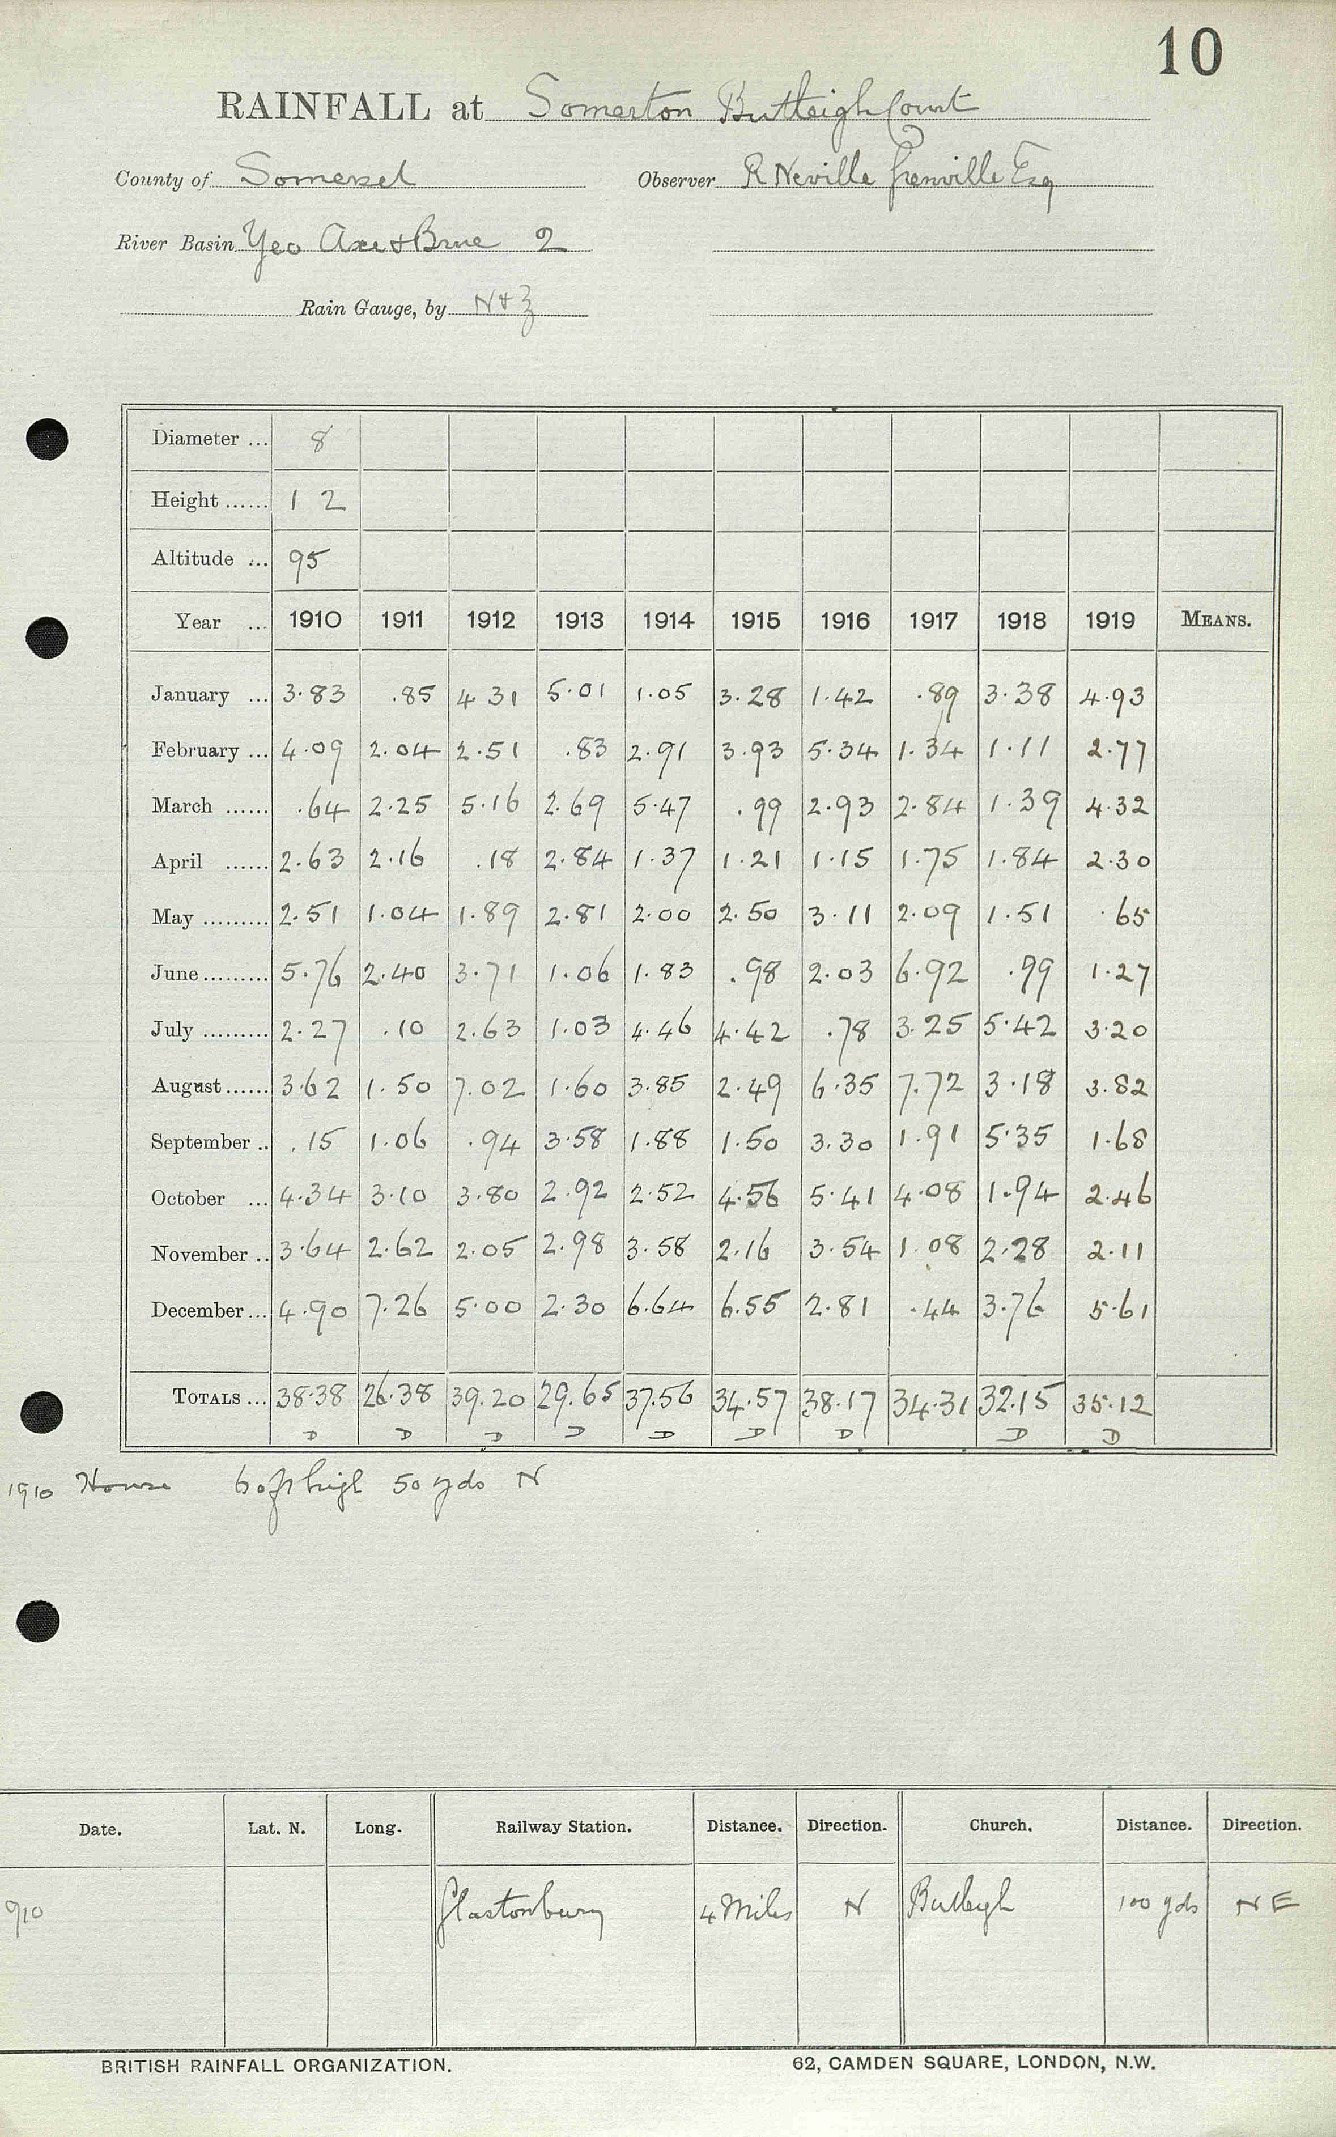 10
RAINFALL at Somerton Butleigh Court
County of Somerset Observer R Neville Grenville Esq
River Basin Yeo Axe & Brue 2
Rain Gauge, by N & Z
Diameter ... 8
Height ...... 12
Altitude ... 95
Year ... 1910 1911 1912 1913 1914 1915 1916 1917 1918 1919 MEANS.
January ... 3.83 .85 4.31 5.01 1.05 3.28 1.42 .89 3.38 4.93
February ... 4.09 2.04 2.51 .83 2.91 3.93 5.34 1.34 1.11 2.77
March ...... .64 2.25 5.16 2.69 5.47 .99 2.93 2.84 1.39 4.32
April ...... 2.63 2.16 .18 2.84 1.37 1.21 1.15 1.75 1.84 2.30
May ......... 2.51 1.04 1.89 2.81 2.00 2.50 3.11 2.09 1.51 .65
June ......... 5.76 2.40 3.71 1.06 1.83 .98 2.03 6.92 .99 1.27
July ......... 2.27 .10 2.63 1.03 4.46 4.42 .78 3.25 5.42 3.20
August ...... 3.62 1.50 7.02 1.60 3.85 2.49 6.35 7.72 3.18 3.82
September .. .15 1.06 .94 3.58 1.88 1.50 3.30 1.91 5.35 1.68
October ... 4.34 3.10 3.80 2.92 2.52 4.56 5.41 4.08 1.94 2.46
November .. 3.64 2.62 2.05 2.98 3.58 2.16 3.54 1.08 2.28 2.11
December ... 4.90 7.26 5.00 2.30 6.64 6.55 2.81 .44 3.76 5.61
TOTALS ... 38.38 26.38 39.20 29.65 37.56 34.57 38.17 34.31 32.15 35.12
D D D D D D D D D
1910 House 60 ft high 50 yds N
Date. Lat. N. Long. Railway Station. Distance. Direction. Church. Distance. Direction.
910 Glastonbury 4 Miles N Butleigh 100 yds NE
BRITISH RAINFALL ORGANIZATION. 62, CAMDEN SQUARE, LONDON, N.W.